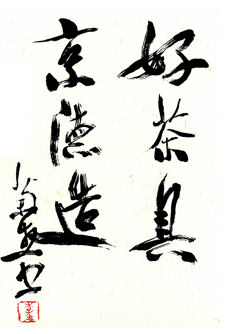 好茶具
京德造